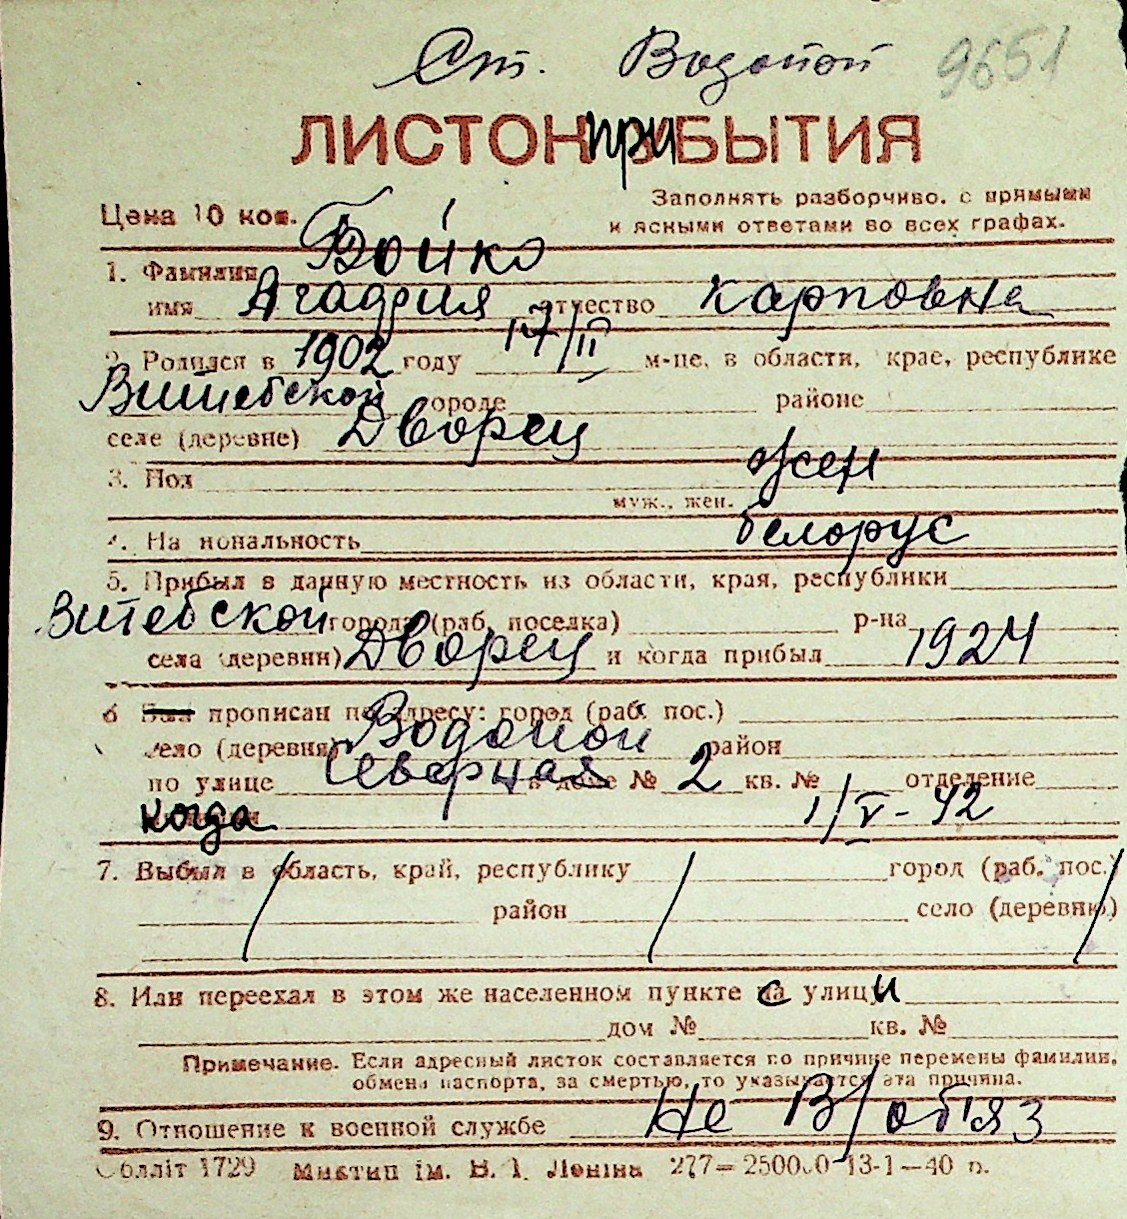 Ст. Водопой 9651
ЛИСТОК при БЫТИЯ
Цена 10 коп. Заполнять разборчиво, с прямыми
и ясными ответами во всех графах.
1. Фамилия Бойко
имя Агаффия отчество Карповна
2. Родился в 1902 году 17/II м-це, в области, крае, республике
Витебской городе районе
селе (деревне) Дворец
3. Пол жен
муж., жен.
4. На нональность белорус
5. Прибыл в данную местность из области, края, республики
Витебской города (раб. поселка) р-на
села (деревни) Дворец и когда прибыл 1924
6 прописан по адресу: город (раб. пос.)
село (деревня) Водопой район
по улице Северная в доме № 2 кв. № отделение
когда 1/V-42
7. Выбыл в область, край, республику город (раб. пос.)
район село (деревню)
8. Или переехал в этом же населенном пункте с улицы
дом № кв. №
Примечание. Если адресный листок составляется по причине перемены фамилии,
обмена паспорта, за смертью, то указывается эта причина.
9. Отношение к военной службе Не в/обяз
Облліт 1729 Миктип ім. В. І. Леніна 277—250000 13-1—40 р.